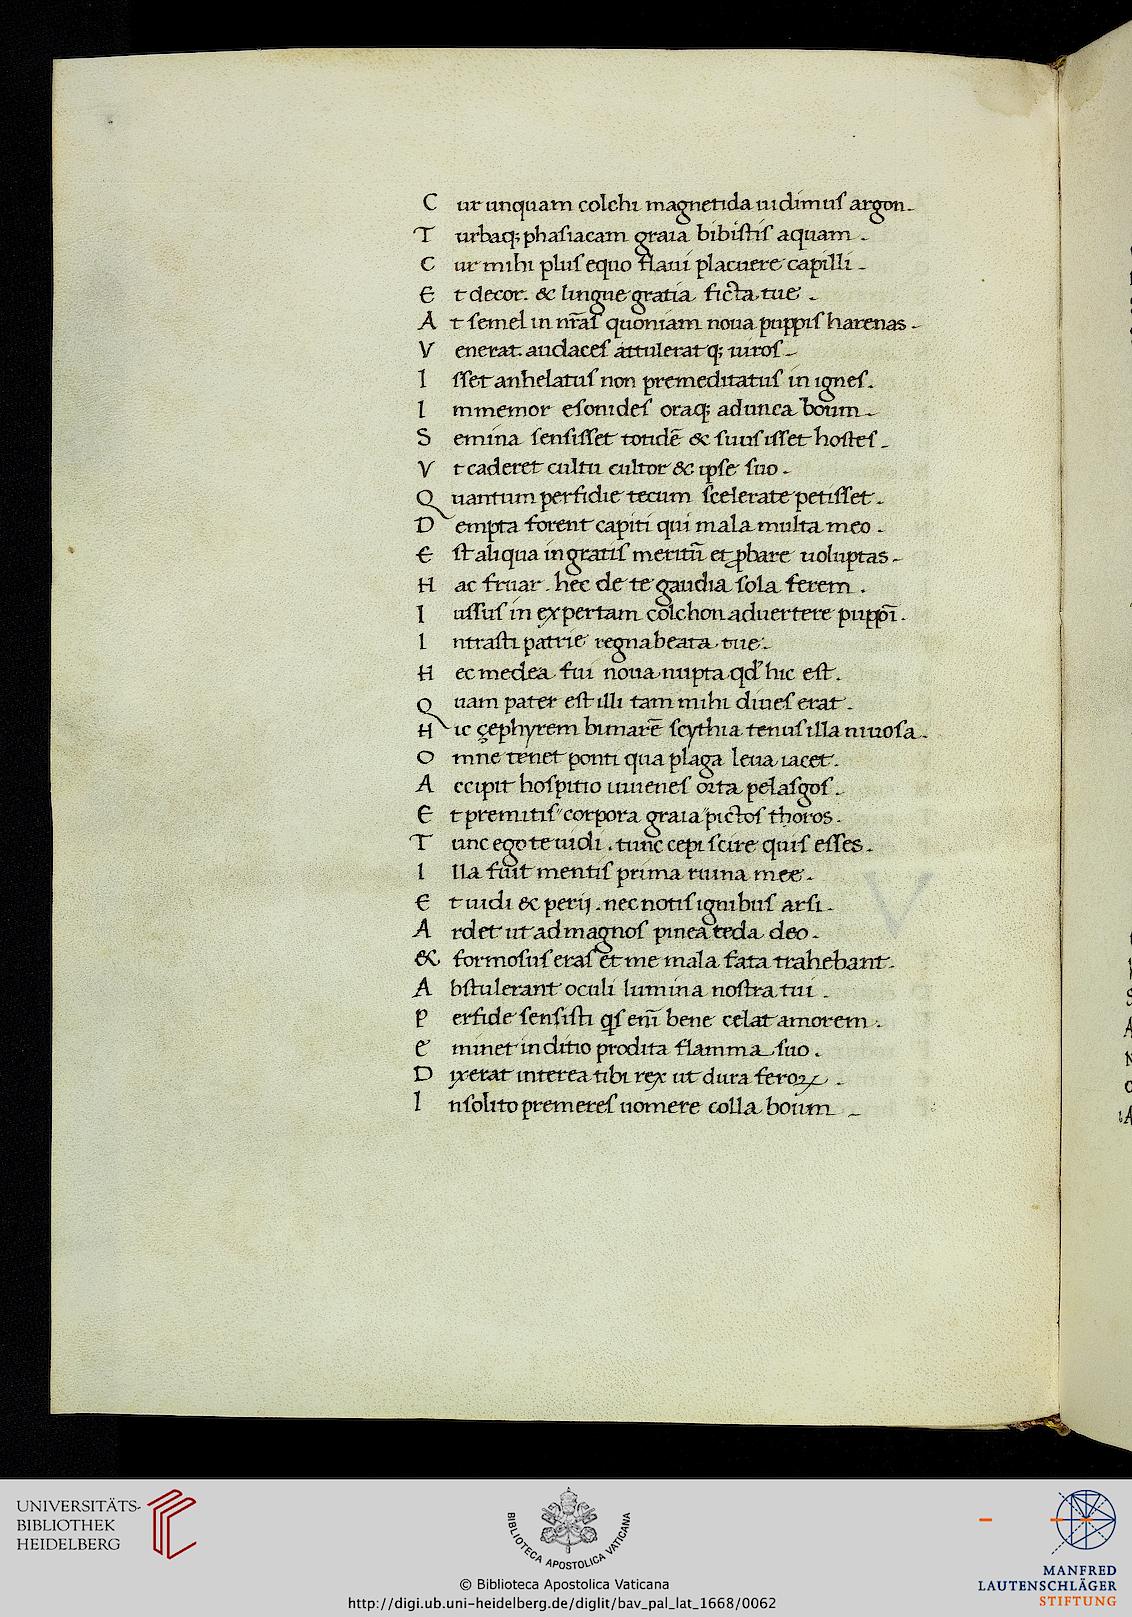 C ur unquam colchi magnetida uidimus argon.
T urbaq; phasiacam graia bibistis aquam.
C ur mihi plus equo flaui placuere capilli.
E t decor. & lingue gratia ficta tue.
A t semel in nr̄as quoniam noua puppis harenas.
V enerat. audaces attulerat q; uiros.
I sset anhelatus non premeditatus in ignes.
I mmemor esonides oraq; adunca boum.
S emina sensisset totidē & suus isset hostes.
V t caderet cultu cultor & ipse suo.
Q uantum perfidie tecum scelerate petisset.
D empta forent capiti qui mala multa meo.
E st aliqua ingratis meritū et ꝓbare uoluptas.
H ac fruar. hec de te gaudia sola ferem.
I ussus in expertam colchon aduertere puppī.
I ntrasti patrie regna beata tue.
H ec medea fui noua nupta qd' hic est.
Q uam pater est illi tam mihi diues erat.
H ic çephyrem bimarē scythia tenus illa niuosa.
O mne tenet ponti qua plaga leua iacet.
A ccipit hospitio iuuenes oeta pelasgos.
E t premitis" corpora graia" pictos thoros.
T unc ego te uidi. tunc cepi scire quis esses.
I lla fuit mentis prima ruina mee.
E t uidi & perij. nec notis ignibus arsi.
A rdet ut ad magnos pinea teda deo.
& formosus eras et me mala fata trahebant.
A bstulerant oculi lumina nostra tui.
P erfide sensisti qs enī bene celat amorem.
e minet inditio prodita flamma suo.
D ixerat interea tibi rex ut dura feroꝝ.
I nsolito premeres uomere colla boum.
V
UNIVERSITÄTS-
BIBLIOTHEK
HEIDELBERG
BIBLIOTECA APOSTOLICA VATICANA
© Biblioteca Apostolica Vaticana
http://digi.ub.uni-heidelberg.de/diglit/bav_pal_lat_1668/0062
MANFRED
LAUTENSCHLÄGER
STIFTUNG